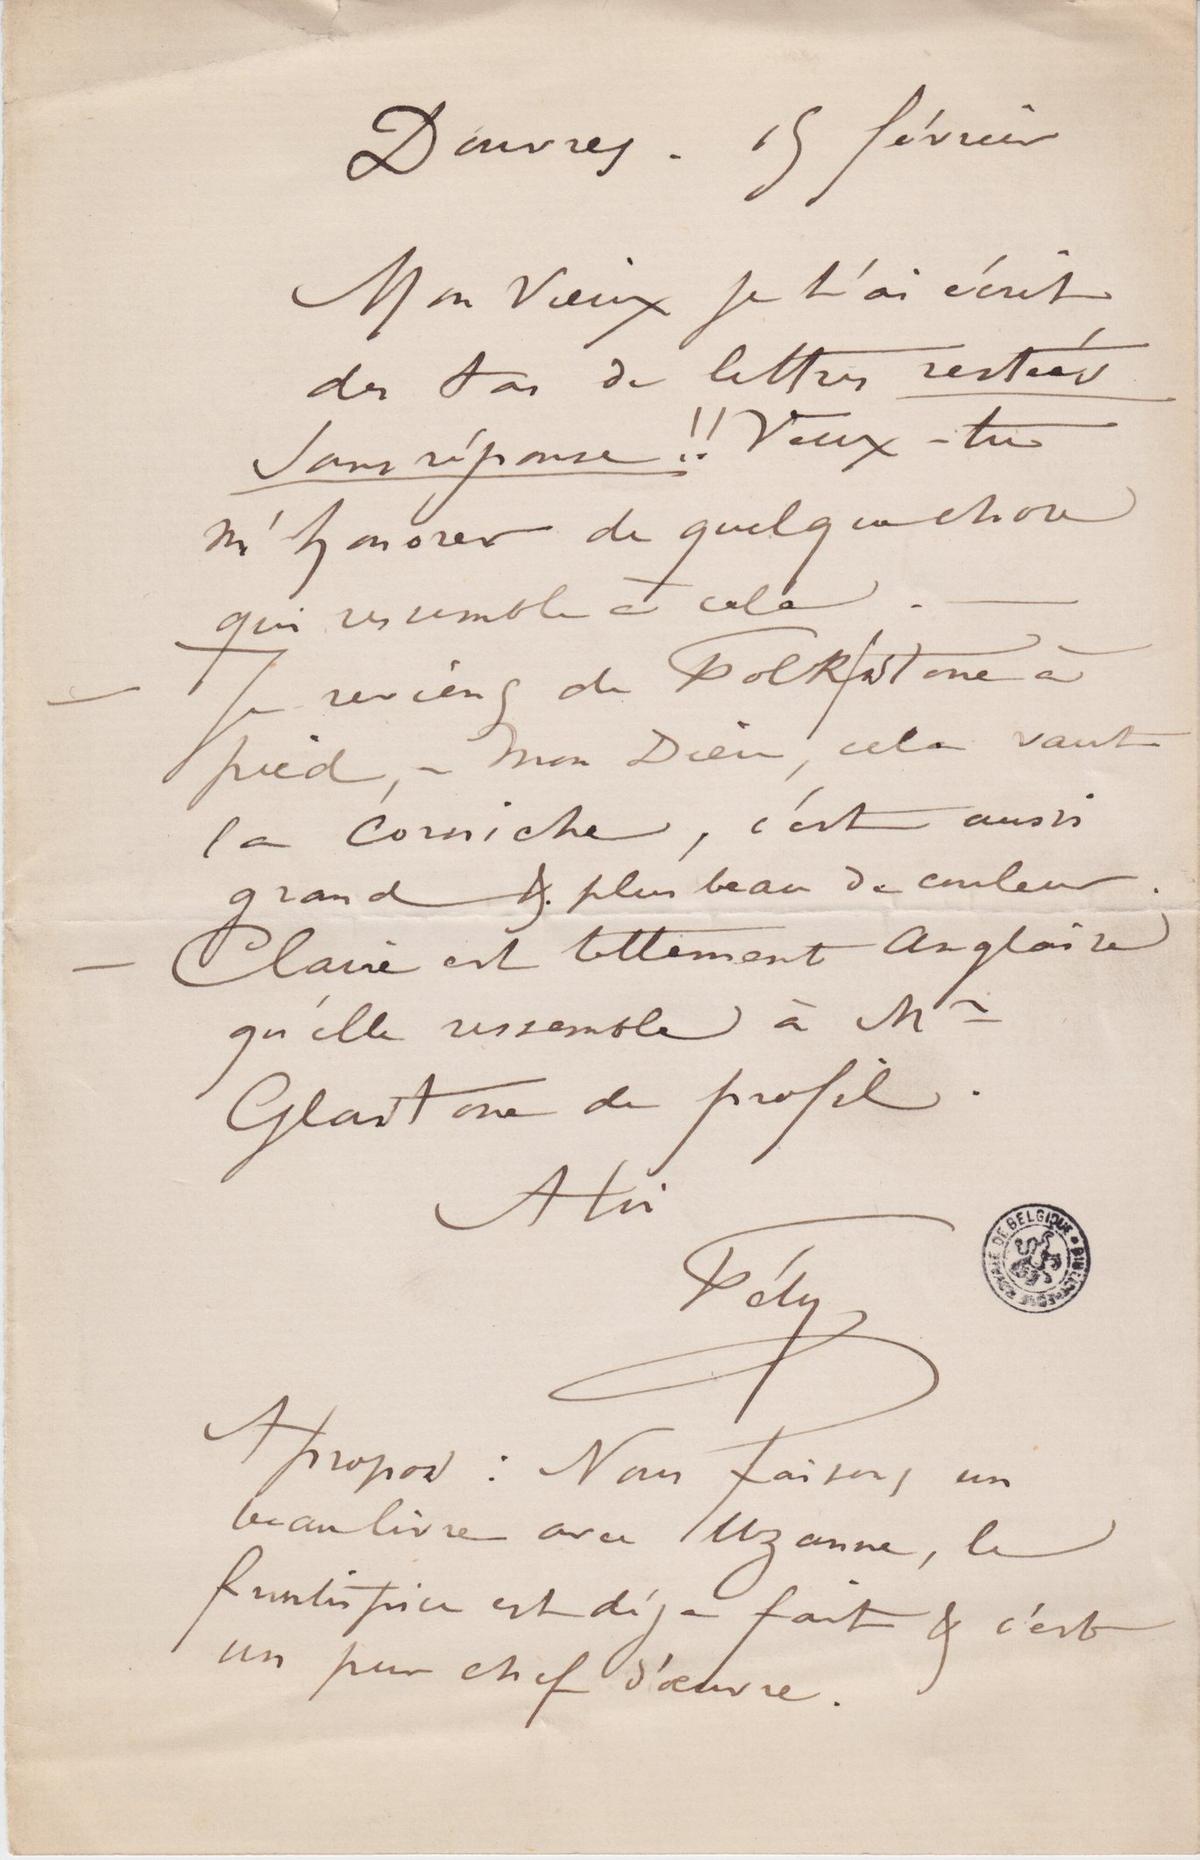 Douvres. 15 février
Mon Vieux je t'ai écrit
des tas de lettres restées
sans réponse!! Veux-tu
m'honorer de quelque chose
qui ressemble à cela. —
— Je reviens de Folkstone à
pied, – Mon Dieu, cela vaut
la Corniche, c'est aussi
grand & plus beau de couleur.
— Claire est tellement Anglaise
qu'elle ressemble à Mr
Glastone de profil.
A toi
Fély
BIBLIOTHEQUE ROYALE DE BELGIQUE
A propos : Nous faisons un
beau livre avec Uzanne, le
frontispice est déjà fait & c'est
un pur chef d'œuvre.